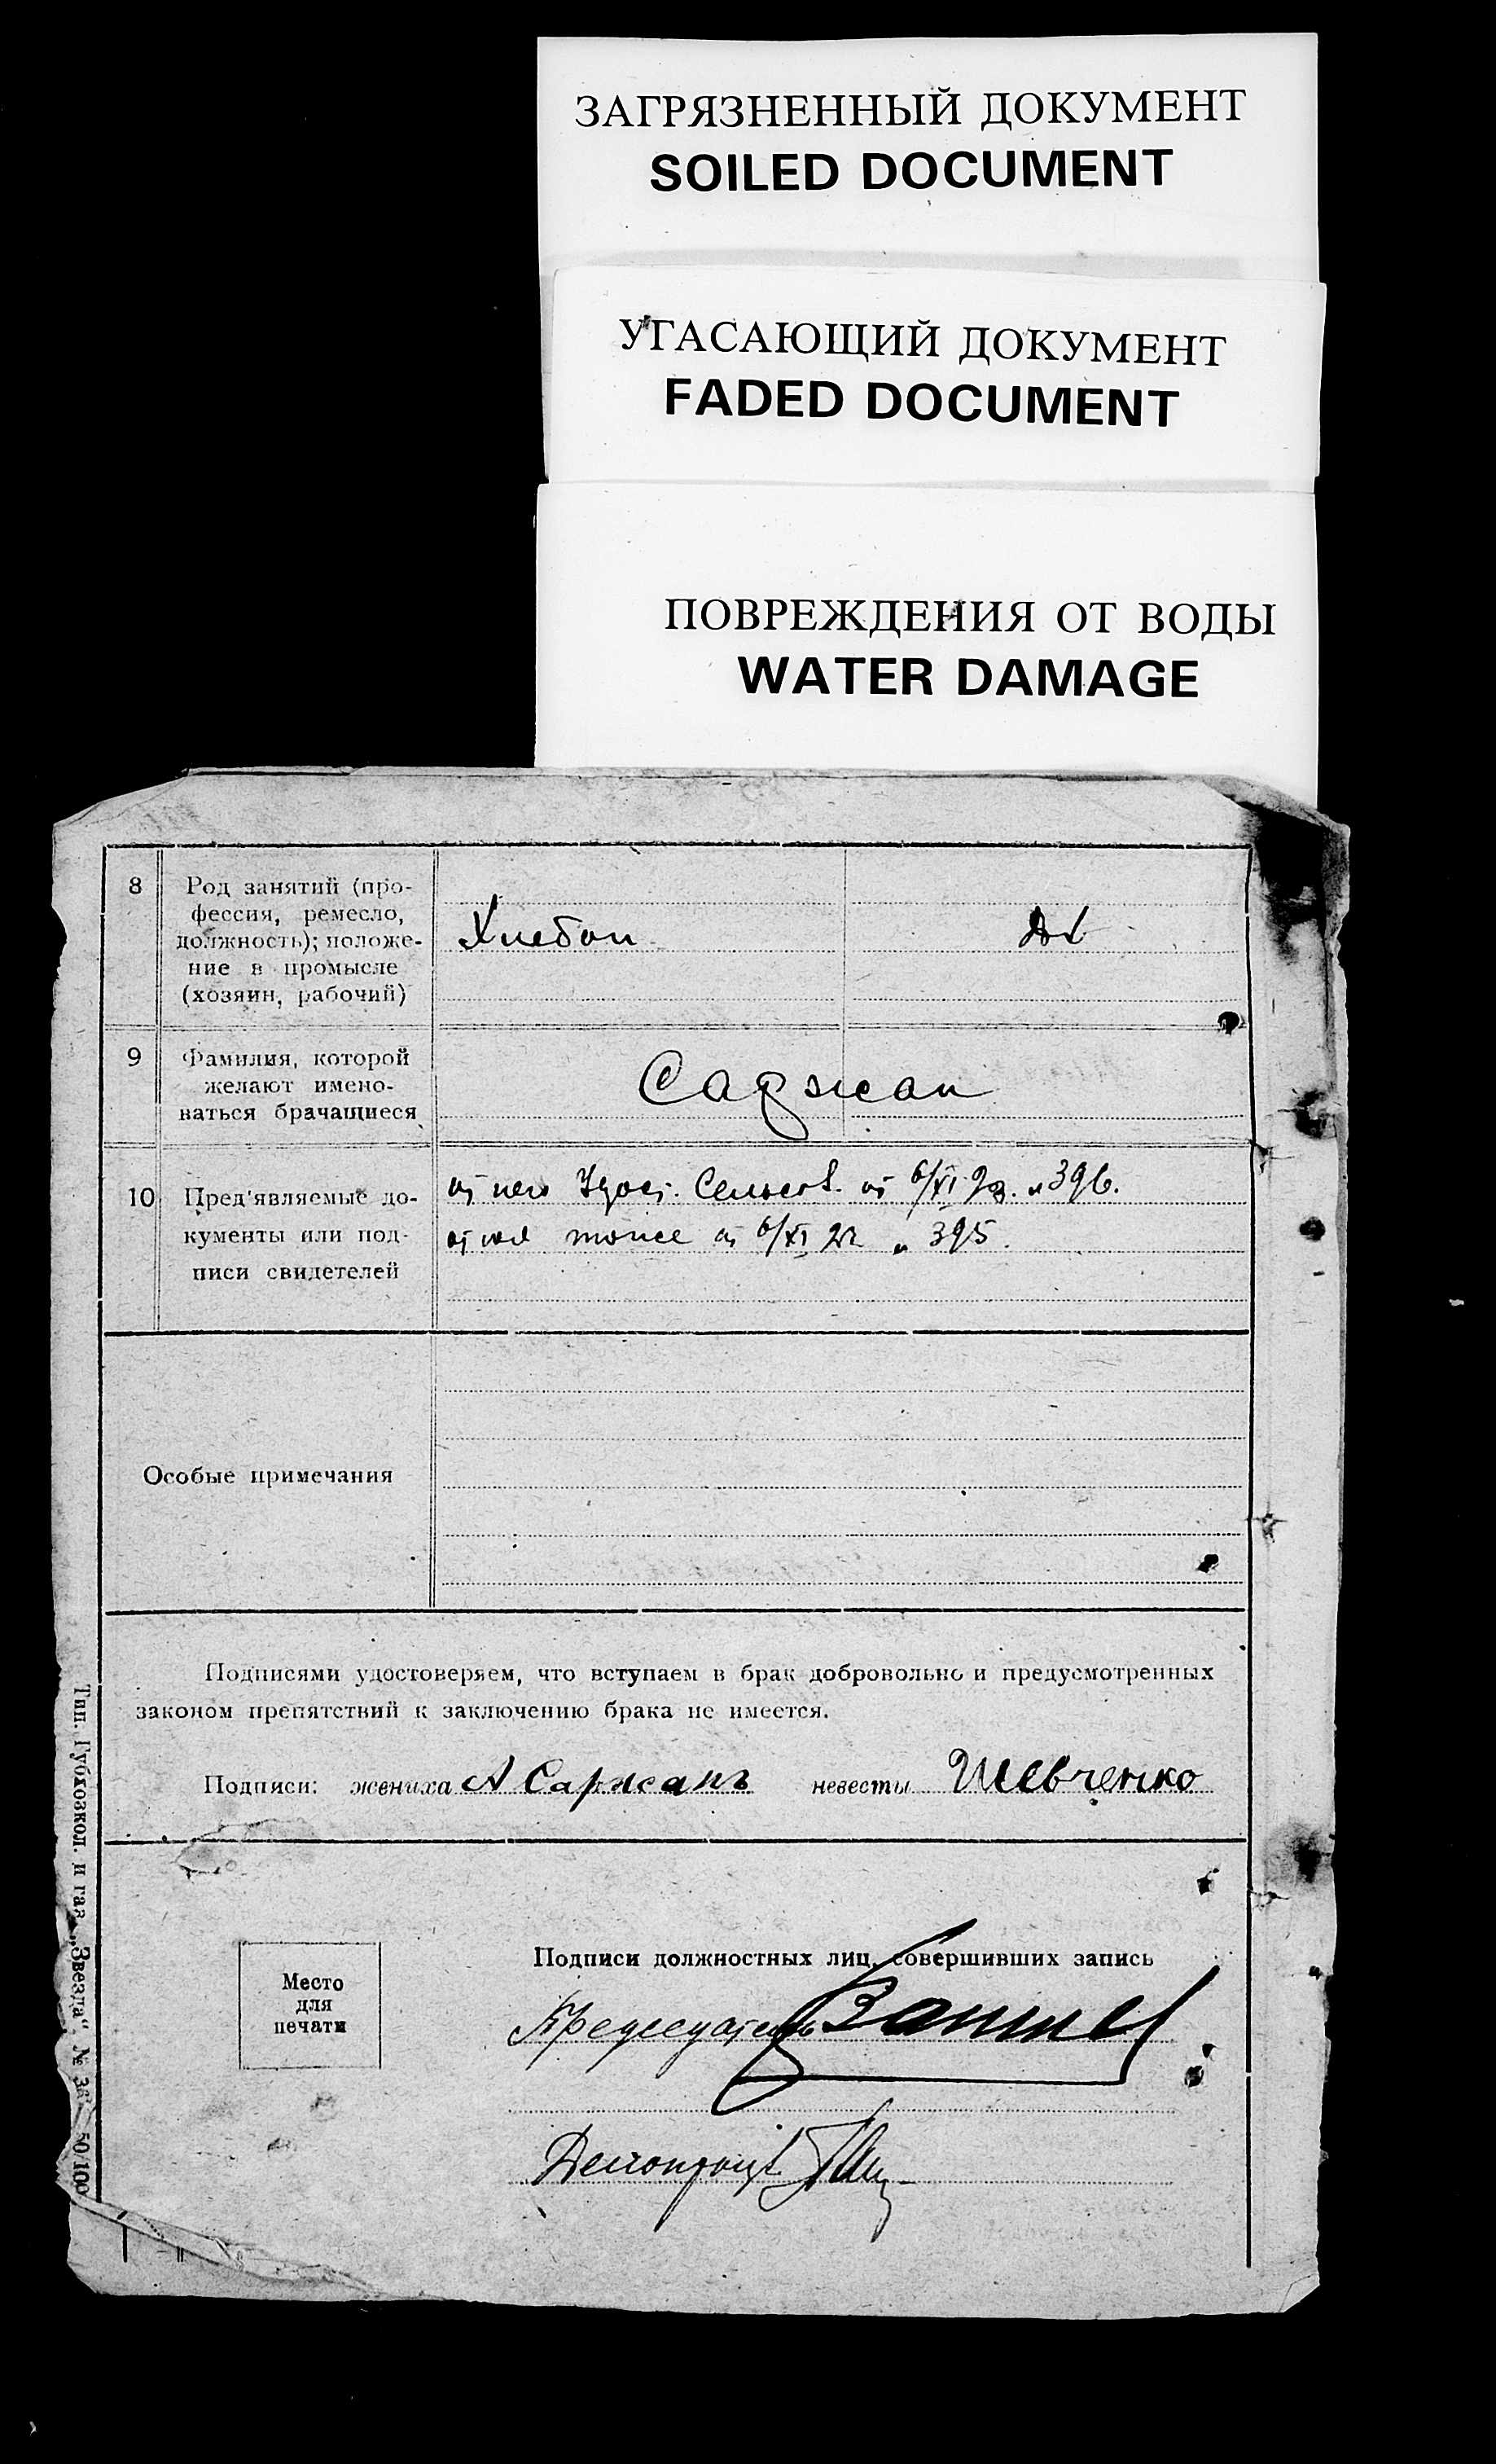 ЗАГРЯЗНЕННЫЙ ДОКУМЕНТ
SOILED DOCUMENT
УГАСАЮЩИЙ ДОКУМЕНТ
FADED DOCUMENT
ПОВРЕЖДЕНИЯ ОТ ВОДЫ
WATER DAMAGE
8
Род занятий (про-
фессия, ремесло,
должность); положе-
ние в промысле
(хозяин, рабочий)
Хлебоп
9
Фамилия, которой
желают имено-
ваться брачащиеся
Саржан
10
Пред'являемые до-
кументы или под-
писи свидетелей
от него Удост. Сельсов. от 6/XI 22. № 396.
от неё тоже от 6/XI 22 № 395.
Особые примечания
Подписями удостоверяем, что вступаем в брак добровольно и предусмотренных
законом препятствий к заключению брака не имеется.
Подписи: жениха А Саржанъ невесты Шевченко
Место
для
печати
Подписи должностных лиц, совершивших запись
Председатель
Делопроизв.
Тип. Губхозкол. и газ. „Звезда". № 50/100